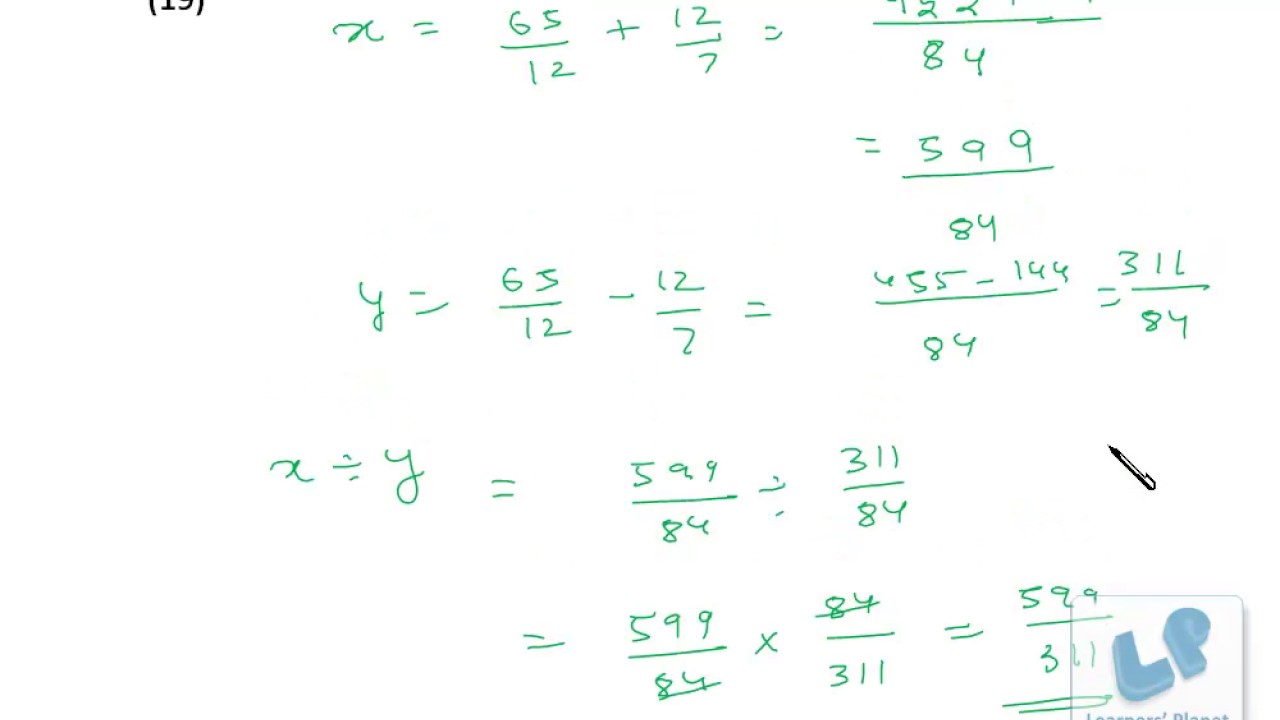 (19)
x = 65/12 + 12/7 = /84
= 599/84
y = 65/12 - 12/7 = 455-144/84 = 311/84
x ÷ y = 599/84 ÷ 311/84
= 599/84 × 84/311 = 599/311
LP
Learners' Planet